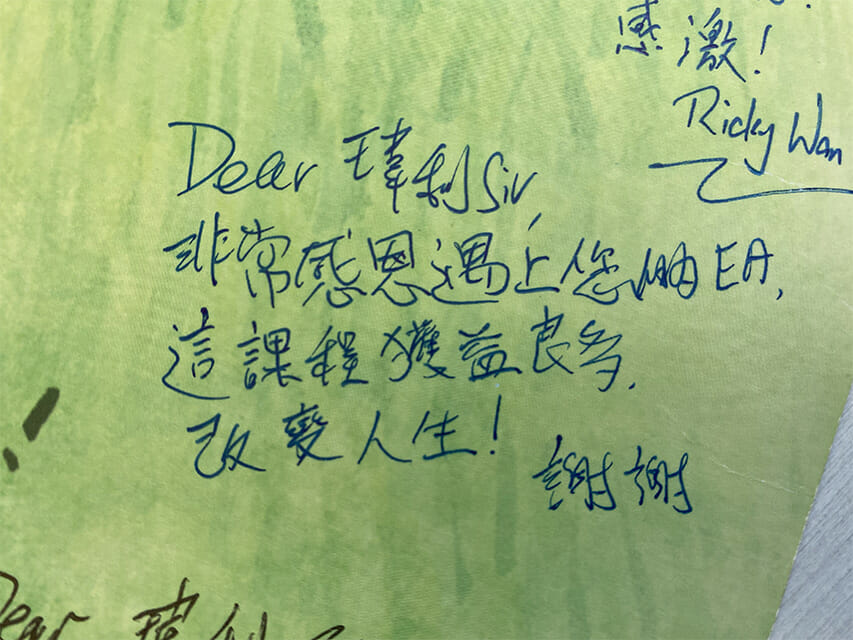 感激!
Ricky Wan
Dear 瑋利Sir,
非常感恩遇上您 EA,
這課程獲益良多.
改變人生!
謝謝
!
Dear 瑋利